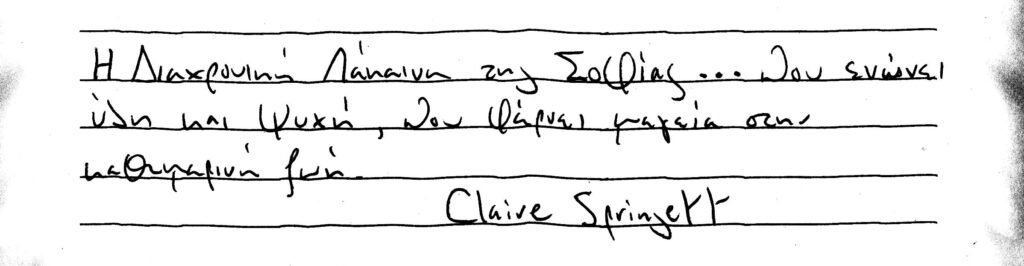 Η Διαχρονική Λάμαινα της Σοφίας... που ενώνει
ύλη και ψυχή, που φέρνει μαγεία στην
καθημερινή ζωή.
Claire Springett